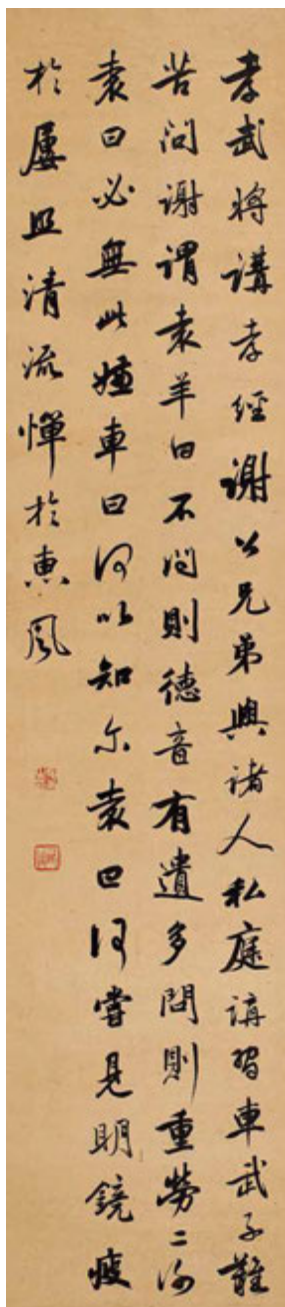 孝武將講孝經謝公兄弟與諸人私庭講習車武子難
苦問謝謂袁羊曰不問則德音有遺多問則重勞二謝
袁曰必無此嫌車曰何以知尔袁曰何嘗見明鏡疲
於屢照清流憚於惠風